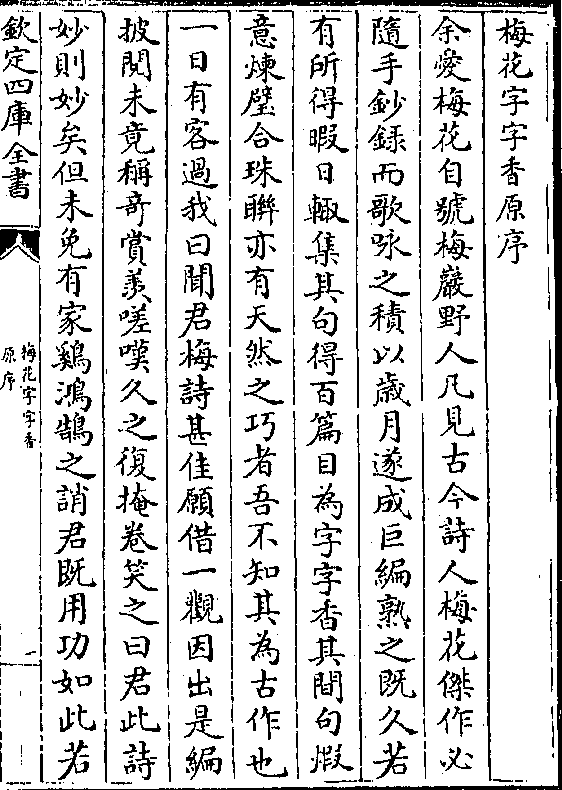 梅花字字香原序
余愛梅花自號梅巖野人凡見古今詩人梅花傑作必
隨手鈔錄而歌咏之積以歲月遂成巨編熟之既久若
有所得暇日輙集其句得百篇目為字字香其間句煆
意煉璧合珠聯亦有天然之巧者吾不知其為古作也
一日有客過我曰聞君梅詩甚佳願借一觀因出是編
披閱未竟稱竒賞羨嗟嘆久之復掩卷笑之曰君此詩
妙則妙矣但未免有家鷄鴻鵠之誚君既用功如此若
欽定四庫全書
梅花字字香
原序
一